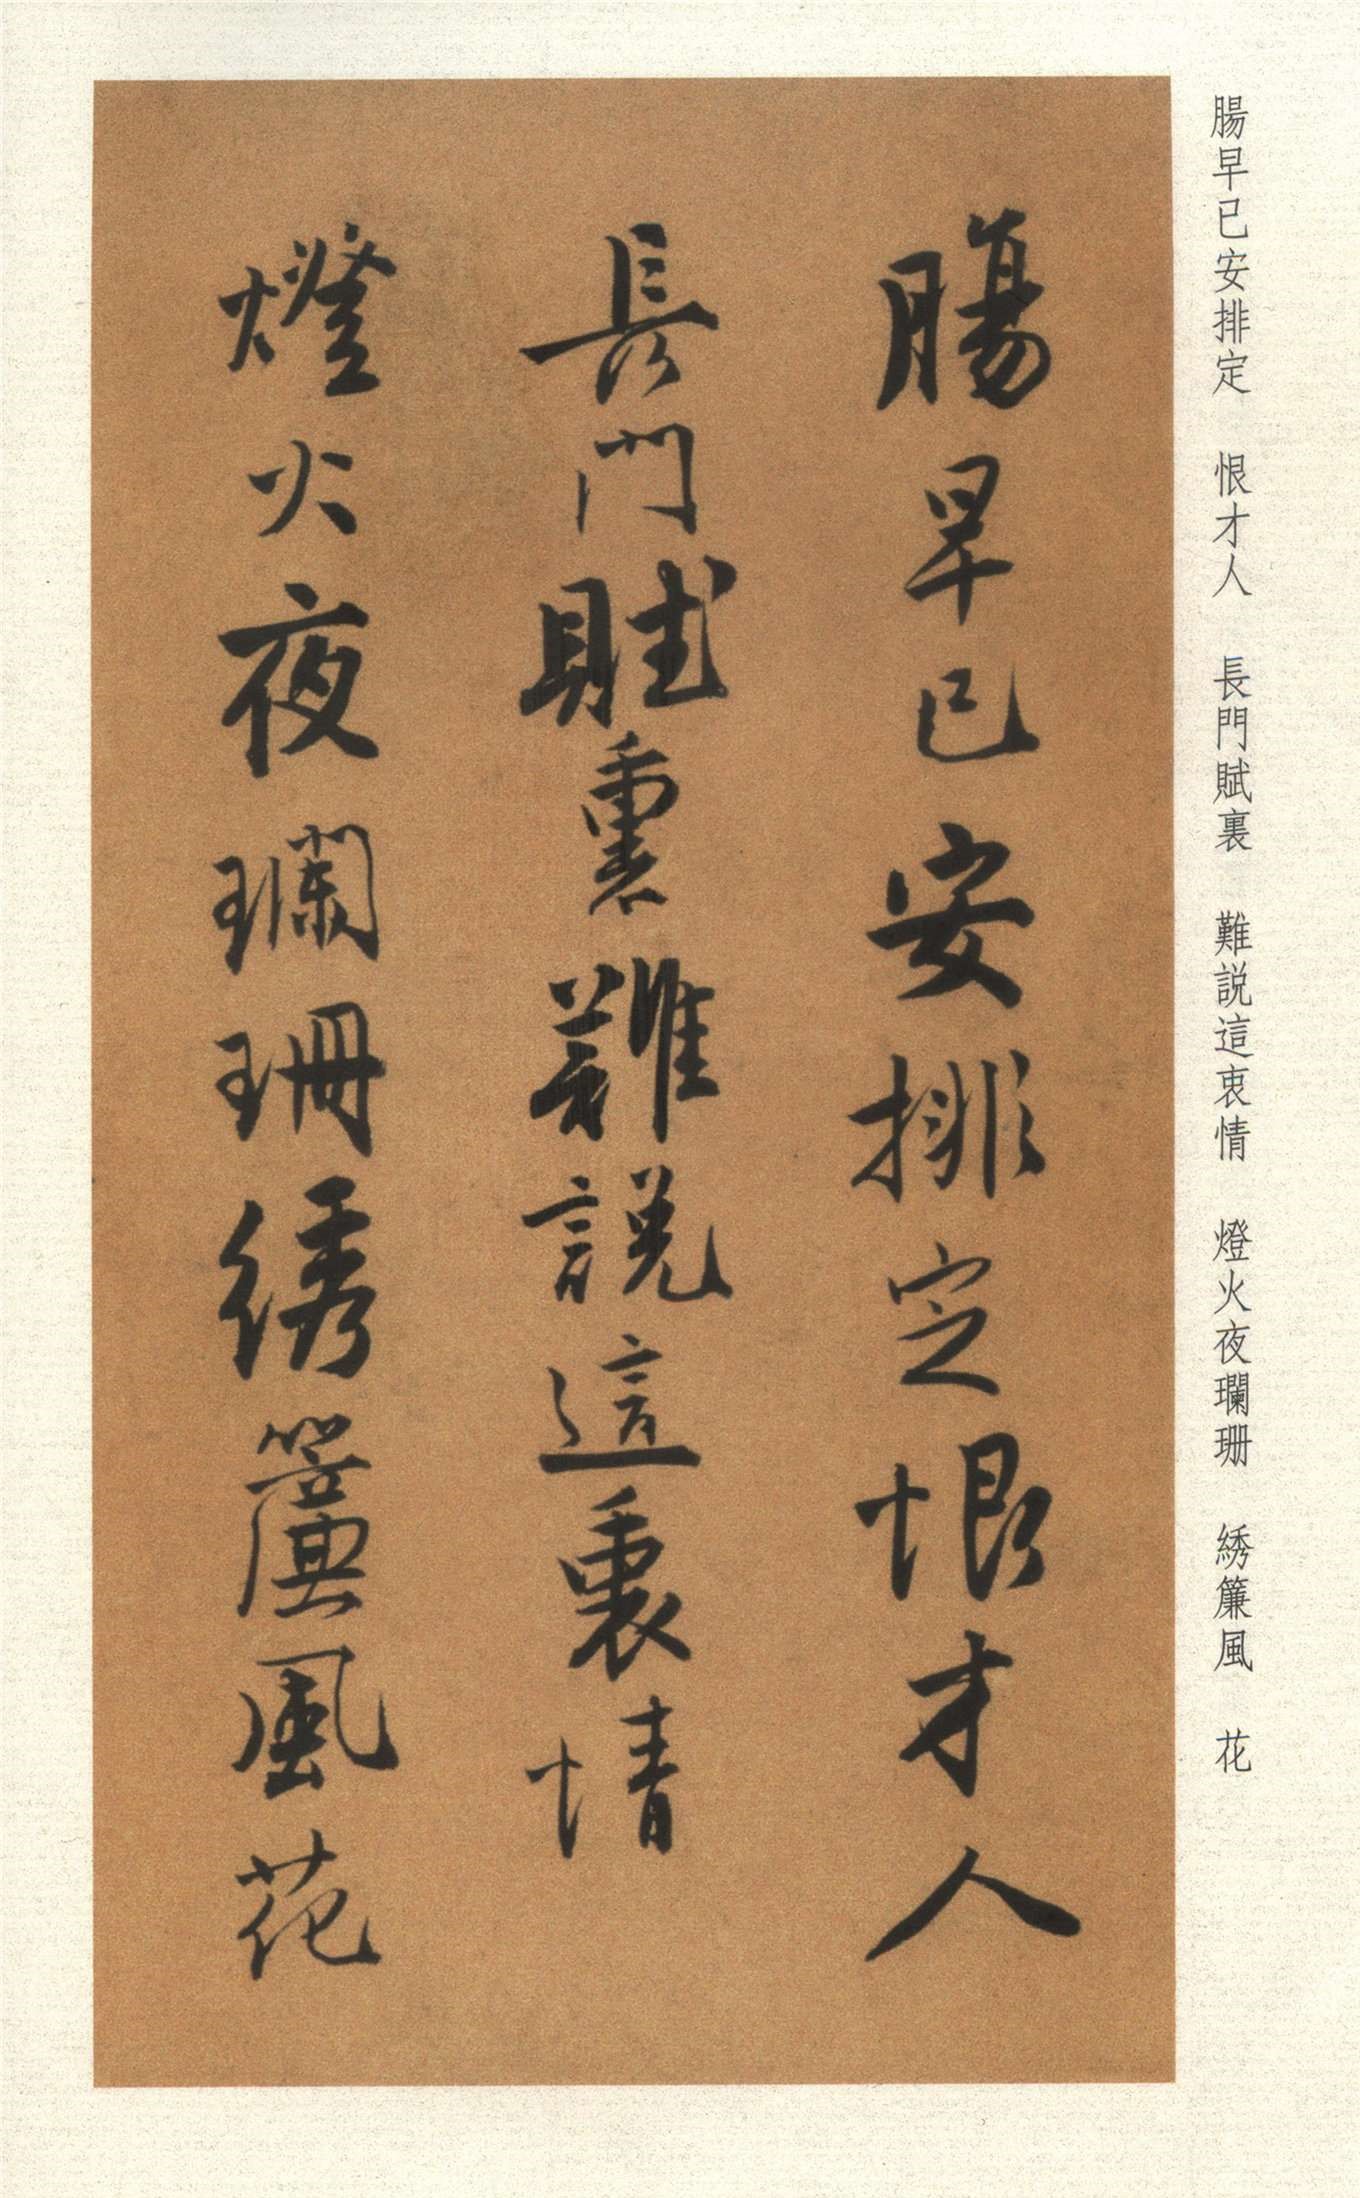 腸早已安排定　恨才人　長門賦裏　難説這衷情　燈火夜瓓珊　綉簾風　花
腸早已安排定恨才人
長門賦裏難説這衷情
燈火夜瓓珊綉簾風花